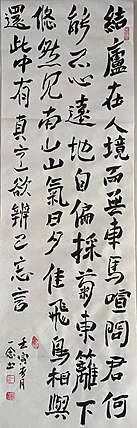 結廬在人境而無車馬喧問君何
能尔心遠地自偏採菊東籬下
悠然见南山山氣日夕佳飛鳥相與
還此中有真意欲辨已忘言
壬寅